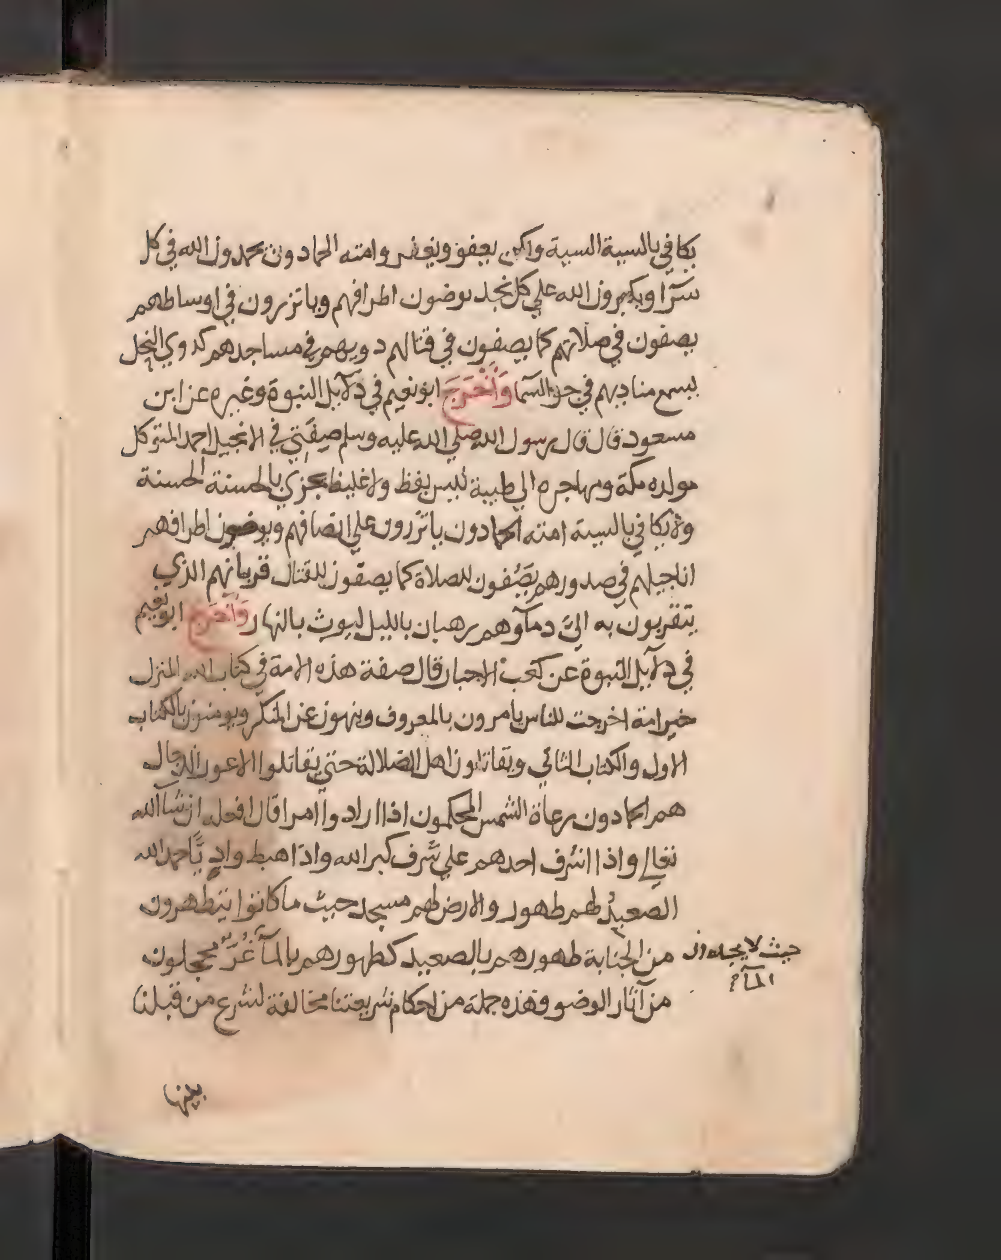 يكافي بالسيية السيية ولكن يعفو ويغفر وامته الحمادون يحمدون الله في كل
سرا ويكبرون الله علي كل نجد يوضون اطرافهم وياتزرون في اوساطهم
يصفون في صلاتهم كما يصفون في قتالهم دويهم في مساجدهم كدوي النحل
يسمع مناديهم في جو السما وأخرج ابو نعيم في دلايل النبوة وغيره عن ابن
مسعود قال قال رسول الله صلي الله عليه وسلم صفتي في الانجيل احمد المتوكل
مولده مكة ومهاجره الي طيبة ليس بفظ ولا غليظ يجزي بالحسنة الحسنة
ولا يكافي بالسيية امته الحمادون ياتزرون علي انصافهم ويوضون اطرافهم
اناجيلهم في صدورهم يصفون للصلاة كما يصفون للقتال قربانهم الذي
يتقربون به الي دمآوهم رهبان بالليل ليوث بالنهار وأخرج ابو نعيم
في دلايل النبوة عن كعب الاحبار قال صفة هذه الامة في كتاب الله المنزل
خير امة اخرجت للناس يامرون بالمعروف وينهون عن المنكر ويومنون بالكتاب
الاول والكتاب الثاني ويقاتلون اهل الضلالة حتي يقاتلوا الاعور الدجال
هم الحمادون رعاة الشمس المحكمون اذا ارادوا امرا قال افعله ان شآ الله
تعالي واذا اشرف احدهم علي شرف كبر الله واذا هبط واديًا حمد الله
الصعيد لهم طهور والارض لهم مسجد حيث ما كانوا يتطهرون
من الجنابة طهورهم بالصعيد كطهورهم بالمآ غُرّ محجلون
حيث لا يجدون
المآ
من آثار الوضو فهذه جملة من احكام شريعتنا مخالفة لشرع من قبلنا
بعينها